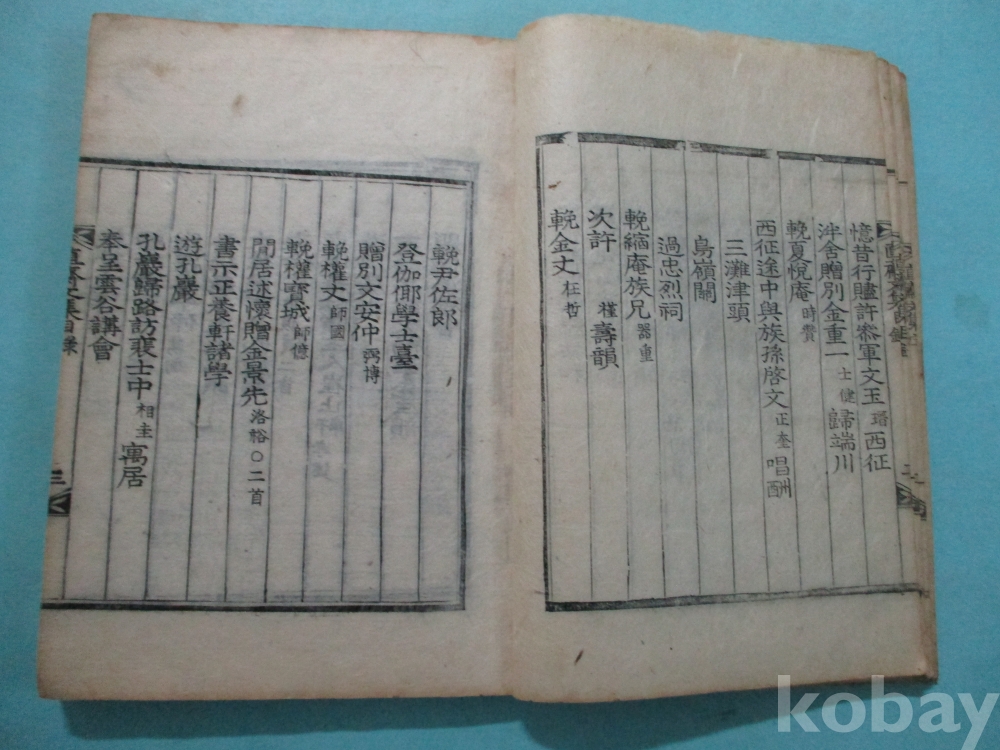 憶昔行贐許叅軍文玉瑨西征
泮舍贈別金重一士健歸端川
輓夏悅庵時贊
西征途中與族孫啓文正奎唱酬
三灘津頭
鳥嶺關
過忠烈祠
輓縮庵族兄器重
次許墐壽韻
輓金丈在哲
輓尹佐郎
登伽倻學士臺
贈別文安仲弼博
輓權丈師國
輓權寶城師億
閒居述懷贈金景先洛裕○二首
書示正養軒諸學
遊孔巖
孔巖歸路訪裴士中相圭寓居
奉呈雲谷講會
文集目錄
三
kobay